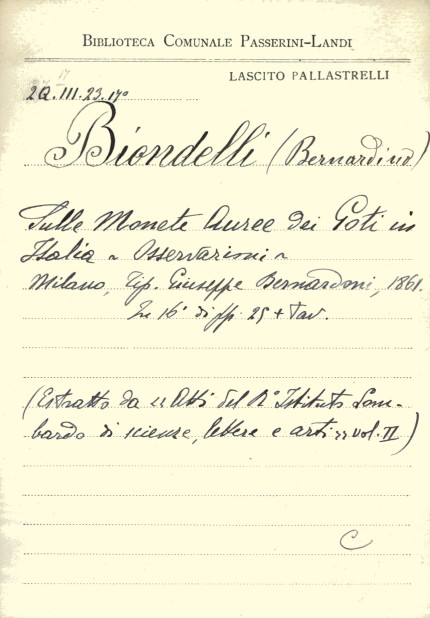 BIBLIOTECA COMUNALE PASSERINI-LANDI
LASCITO PALLASTRELLI
2Q.III.23.17º
Biondelli (Bernardino)
Sulle Monete Auree dei Goti in
Italia ~ Osservazioni ~
Milano, Tip. Giuseppe Bernardoni, 1861.
In 16º di pp. 25 + Tav.
(Estratto da "Atti del Rº Istituto Lom-
bardo di scienze, lettere e arti" vol. II)
C